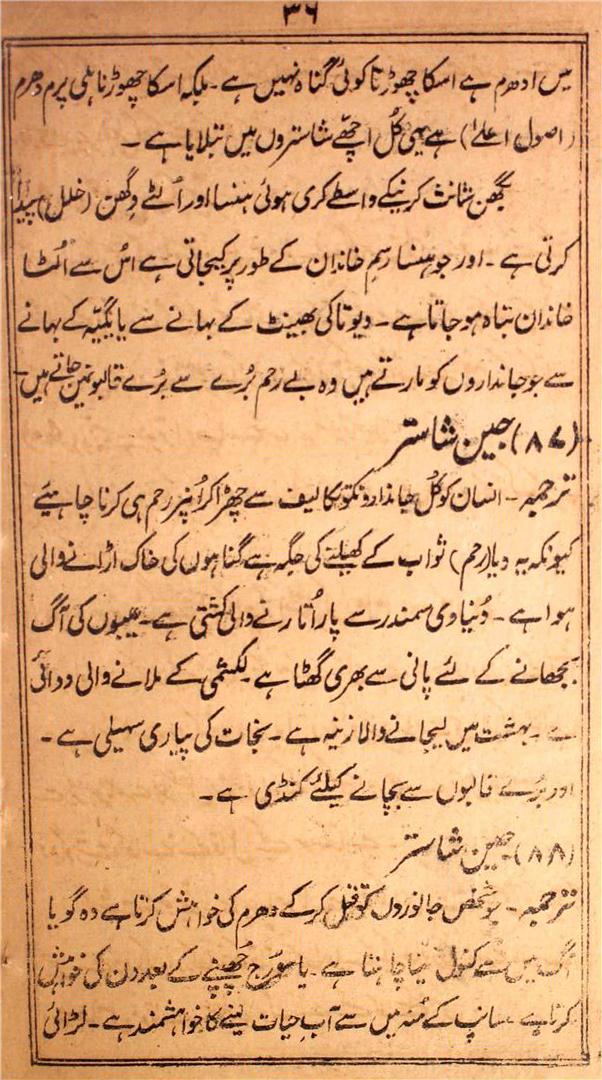 ۳۶
میں ادھرم ہے اسکا چھوڑنا کوئی گناہ نہیں ہے۔ بلکہ اسکا چھوڑنا ہی پرم دھرم
(اصول اعلےٰ) ہے یہی کُل اچھّے شاستروں میں بتلایا ہے۔
بگھن شانت کرنیکے واسطے کری ہوئی ہنسا اور اُلٹے وِگھن (خلل) پیدا
کرتی ہے۔ اور جو ہنسا رسمِ خاندان کے طور پر کیجاتی ہے اُس سے اُلٹا
خاندان تباہ ہو جاتا ہے۔ دیوتا کی بھینٹ کے بہانے سے یا یگیّہ کے بہانے
سے جو جانداروں کو مارتے ہیں وہ بے رحم بُرے سے بُرے قالبونمیں جاتے ہیں۔
(۸۷) جین شاستر
ترجمہ۔ انسان کو کُل جاندارونکو تکالیف سے چھڑا کر اُنپر رحم ہی کرنا چاہیئے
کیونکہ یہ دیا (رحم) ثواب کے کھیلنے کی جگہ ہے گناہوں کی خاک اڑانے والی
ہوا ہے۔ دُنیاوی سمندر سے پار اُتارنے والی کشتی ہے۔ عیبوں کی آگ
بجھانے کے لئے پانی سے بھری گھٹا ہے۔ لکشمی کے ملانے والی
ہے۔ بہشت میں لیجانے والا زینہ ہے۔ نجات کی پیاری سہیلی ہے۔
اور بُرے قالبوں سے بچانے کیلئے کُنڈی ہے۔
(۸۸) جین شاستر
ترجمہ۔ جو شخص جانوروں کو قتل کرکے دھرم کی خواہش کرتا ہے وہ گویا
آگ میں سے کنول لینا چاہتا ہے۔ یا سورج چھپنے کے بعد دن کی خواہش
کرتا ہے۔ سانپ کے مُنہ میں سے آبِ حیات لینے کا خواہشمند ہے۔ لڑائی